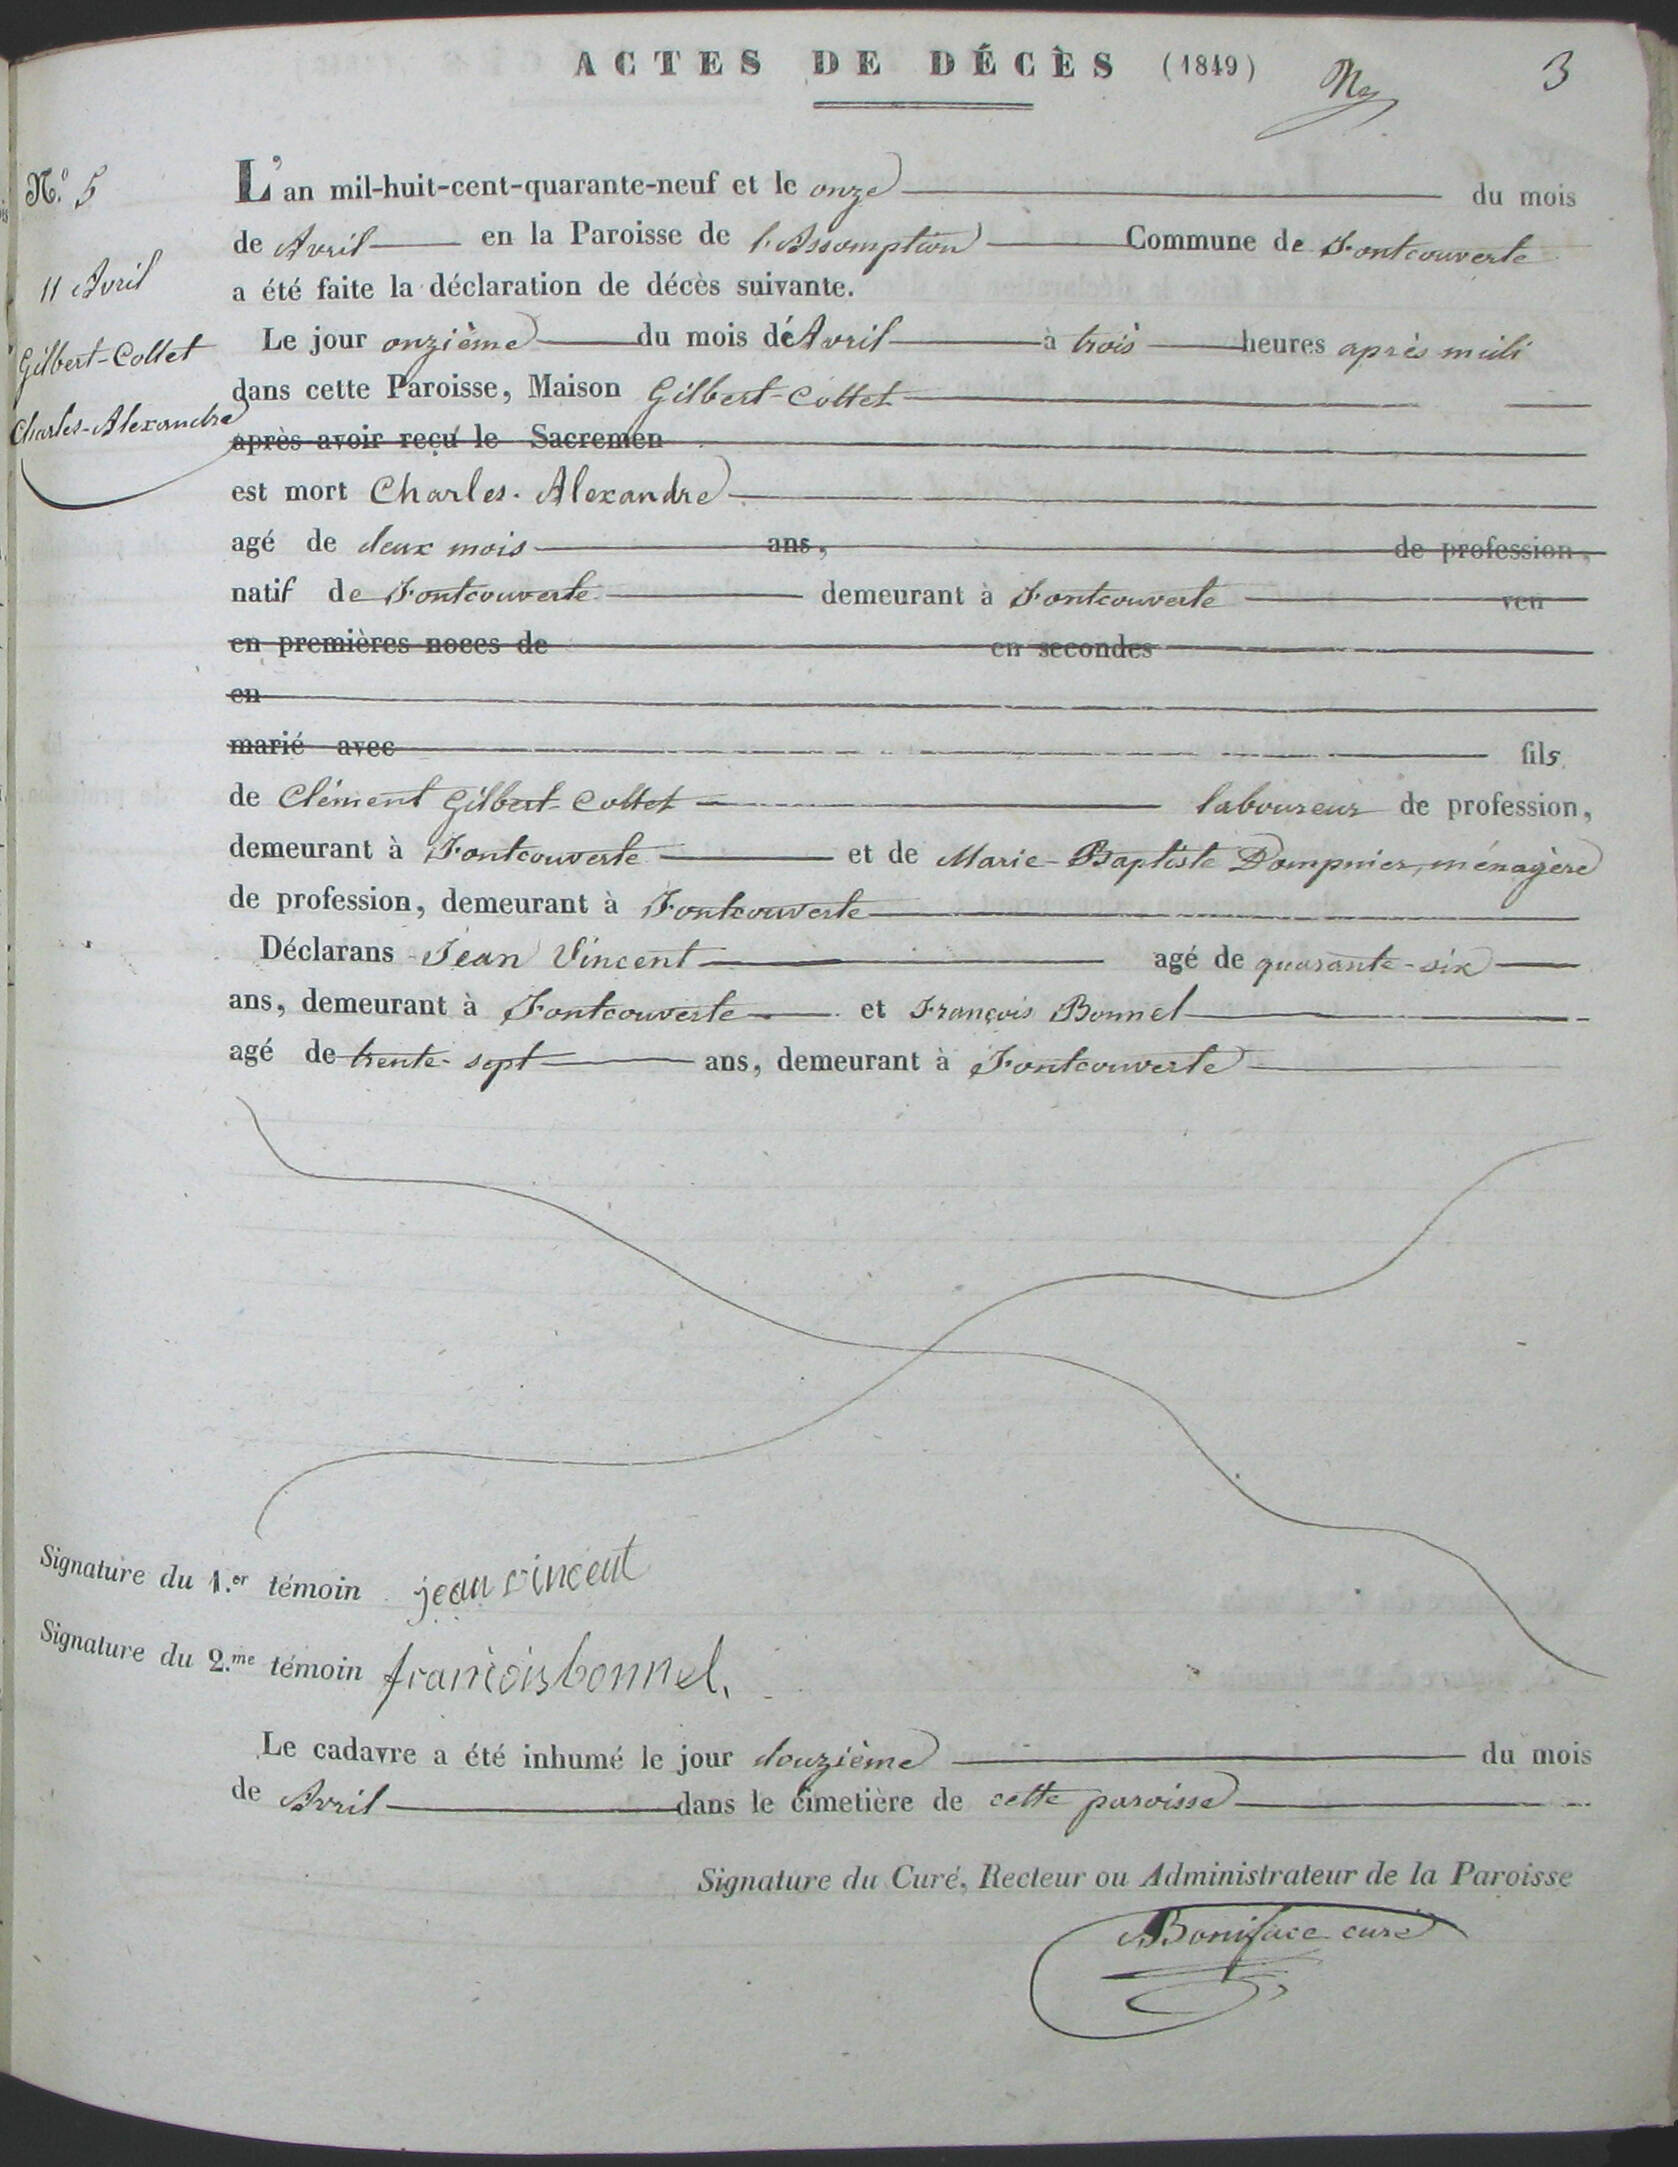 ACTES DE DÉCÈS (1849)
3
N.o 5
11 Avril
Gilbert-Collet
Charles-Alexandre
L'an mil-huit-cent-quarante-neuf et le onze du mois
de Avril en la Paroisse de l'Assomption Commune de Fontcouverte
a été faite la déclaration de décès suivante.
Le jour onzième du mois de Avril à trois heures après midi
dans cette Paroisse, Maison Gilbert-Collet
après avoir reçu le Sacremen
est mort Charles-Alexandre
agé de deux mois ans, de profession,
natif de Fontcouverte demeurant à Fontcouverte veu
en premières noces de en secondes
en
marié avec fils
de Clément Gilbert-Collet laboureur de profession,
demeurant à Fontcouverte et de Marie-Baptiste Dompnier, ménagère
de profession, demeurant à Fontcouverte
Déclarans Jean Vincent agé de quarante-six
ans, demeurant à Fontcouverte et François Bonnel
agé de trente-sept ans, demeurant à Fontcouverte
Signature du 1.er témoin jean vincent
Signature du 2.me témoin francois bonnel,
Le cadavre a été inhumé le jour douzième du mois
de Avril dans le cimetière de cette paroisse
Signature du Curé, Recteur ou Administrateur de la Paroisse
Boniface curé